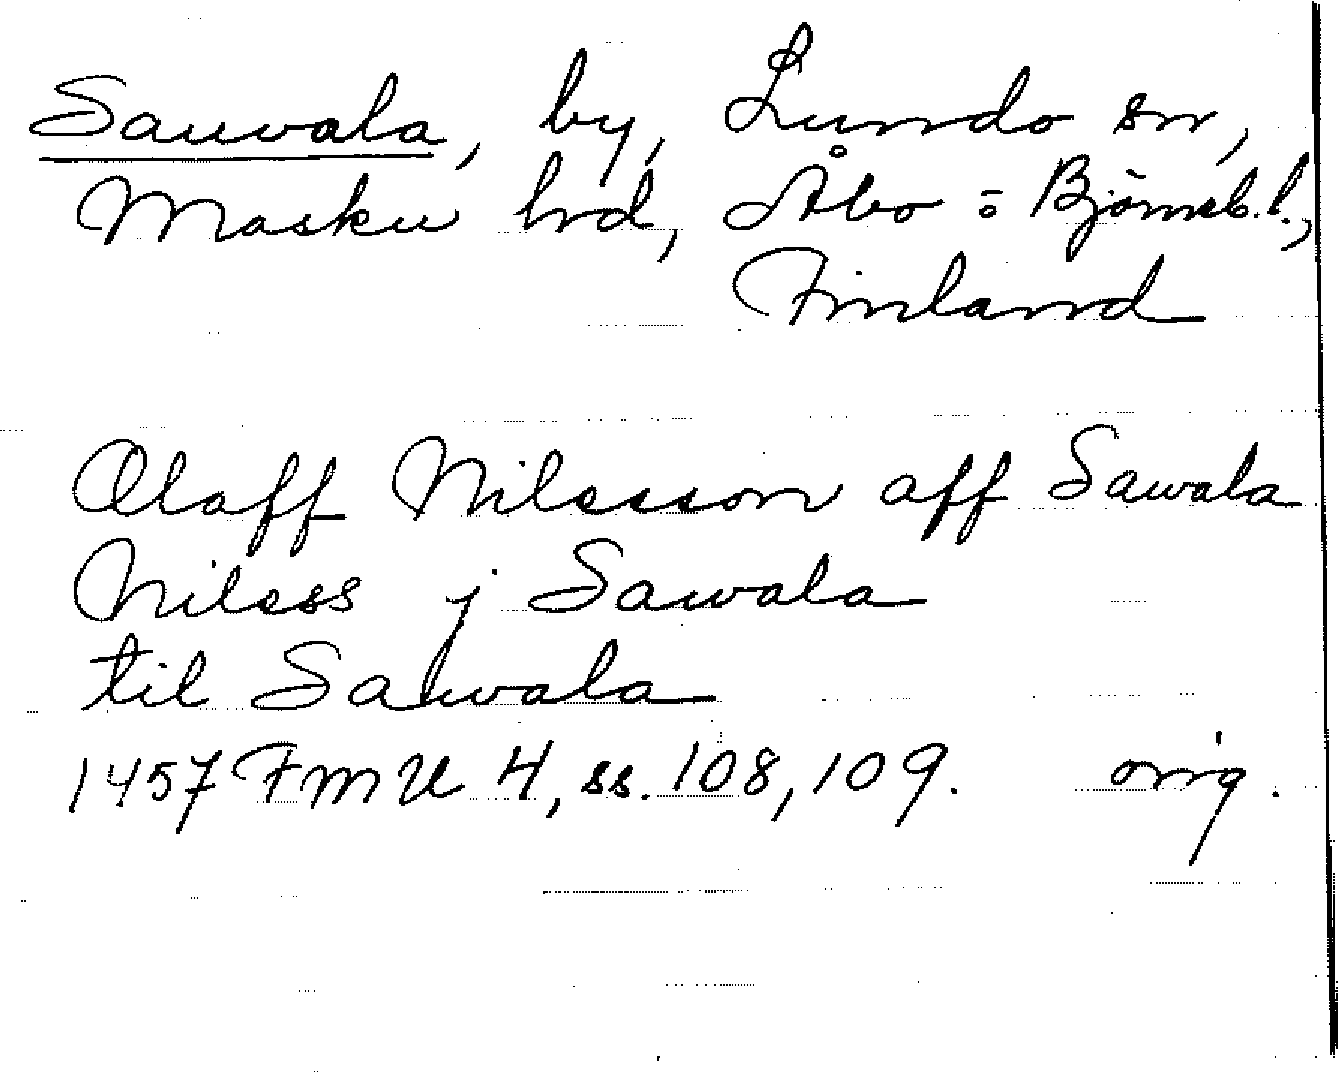 Sauvala, by, Lundo sn,
Masku hrd, Åbo o Björneb.l.,
Finland
Olaff Nilsson aff Sawala
Nilsss j Sawala
til Sawala
1457 FMU 4, ss. 108, 109. orig.